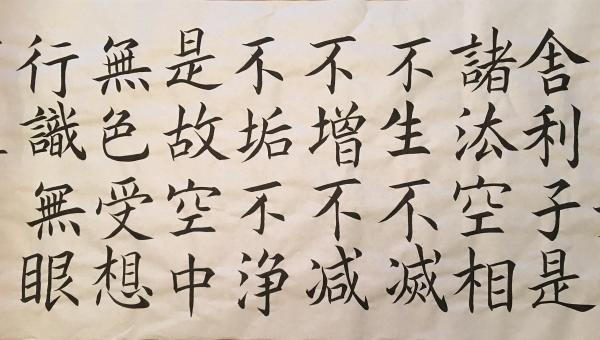 舎利子是
諸法空相
不生不滅
不増不減
不垢不浄
是故空中
無色受想
行識無眼